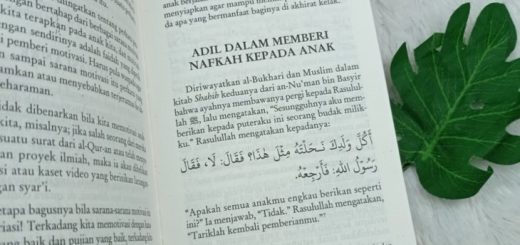 dengan bertahap dari
kita terapkan pada anak
dengan sendirinya adalah faidah yang
pemberi motivasi. Harus pula
sampai sarana motivasi ini
kan atau menyebabkan
haraman.
dak dibenarkan bila kita motivasi
kita, misalnya; jika salah seorang dari
suatu surat dari al-Qur-an atau telah
proyek ilmiah, maka ia akan diberikan
isi atau kaset video yang berisikan
an syar'i.
etapa bagusnya bila sarana-sarana motivasi
riasi! Terkadang kita memotivasi dengan
baik dan pujian yang baik, terkadang
menyiapkan agar mampu
da apa yang bermanfaat baginya di akhirat kelak.
ADIL DALAM MEMBERI
NAFKAH KEPADA ANAK
Diriwayatkan al-Bukhari dan Muslim dalam
kitab Shahih keduanya dari an-Nu'man bin Basyir
bahwa ayahnya membawanya pergi kepada Rasulul-
lah ﷺ, lalu mengatakan, "Sesungguhnya aku mem-
berikan kepada puteraku ini seorang budak milik-
ku." Rasulullah mengatakan kepadanya:
أَكُلَّ وَلَدِكَ نَحَلْتَهُ مِثْلَ هَذَا؟ فَقَالَ: لَا، فَقَالَ
رَسُوْلُ اللهِ: فَأَرْجِعْهُ.
"Apakah semua anakmu engkau berikan seperti
ini?" Ia menjawab, "Tidak." Rasulullah mengatakan,
"Tariklah kembali pemberianmu."